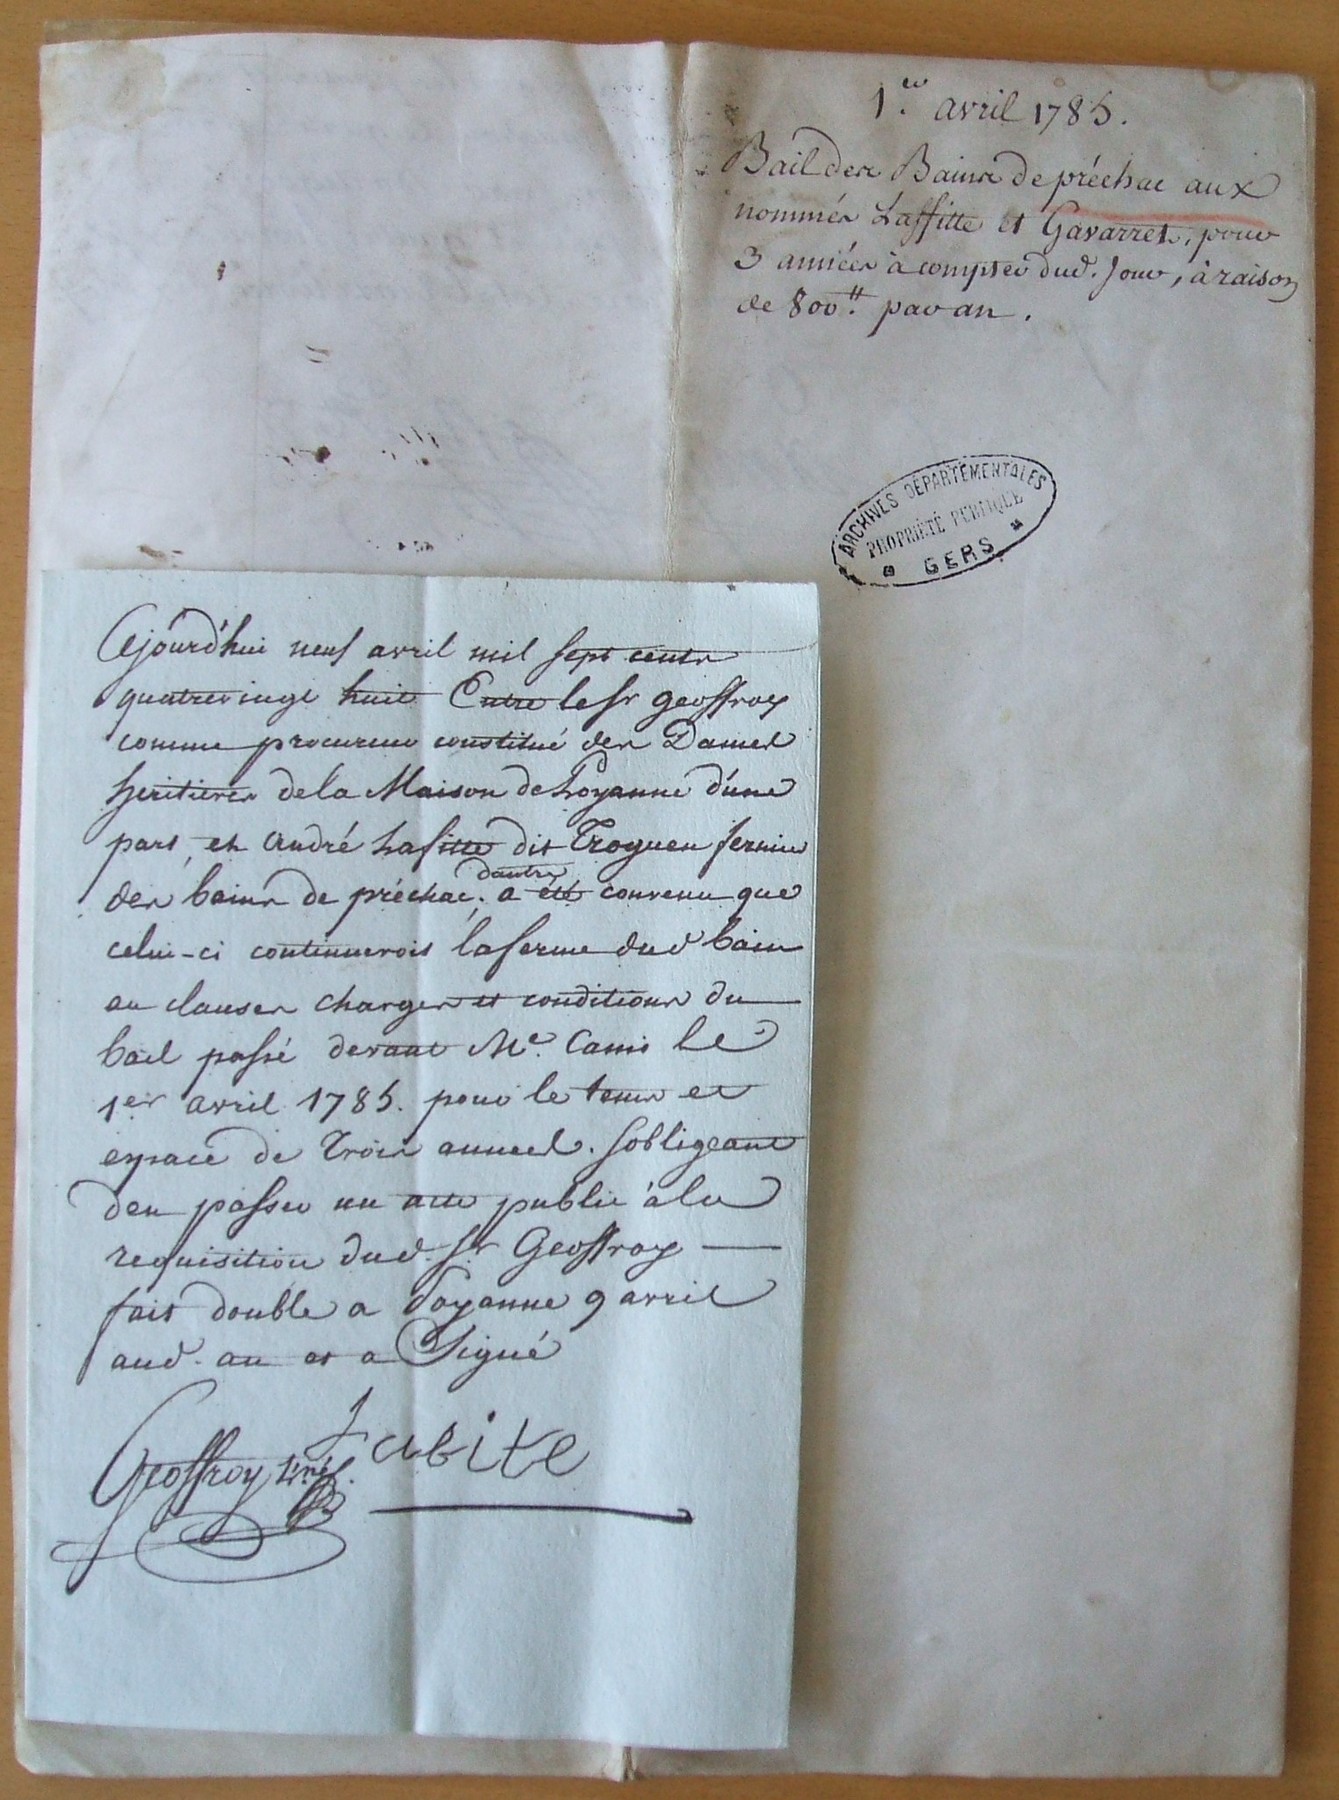 1.er avril 1785.
Bail des Bains de préchac aux
nommés Laffitte et Gavarret, pour
3 années à compter dud. Jour, à raison
de 800.tt par an.
ARCHIVES DÉPARTEMENTALES
PROPRIÉTÉ PUBLIQUE
GERS
Cejourd'hui neuf avril mil sept cents
quatrevingt huit Entre le Sr geoffroy
comme procureur constitué des Dames
heritieres de la Maison de Poyanne d'une
part, et André Lafitte dit Troguen fermier
des bains de préchac, d'autre a été convenu que
celui-ci continuerois la ferme dud bain
au clauses charges et conditions du
bail passé devant Me. Camis le
1er avril 1785. pour le tems et
espace de trois années. s'obligeant
d'en passer un acte public à la
requisition dud. Sr Geoffroy
fait double a Poyanne 9 avril
aud. an et a Signé
Geoffroy Lafite